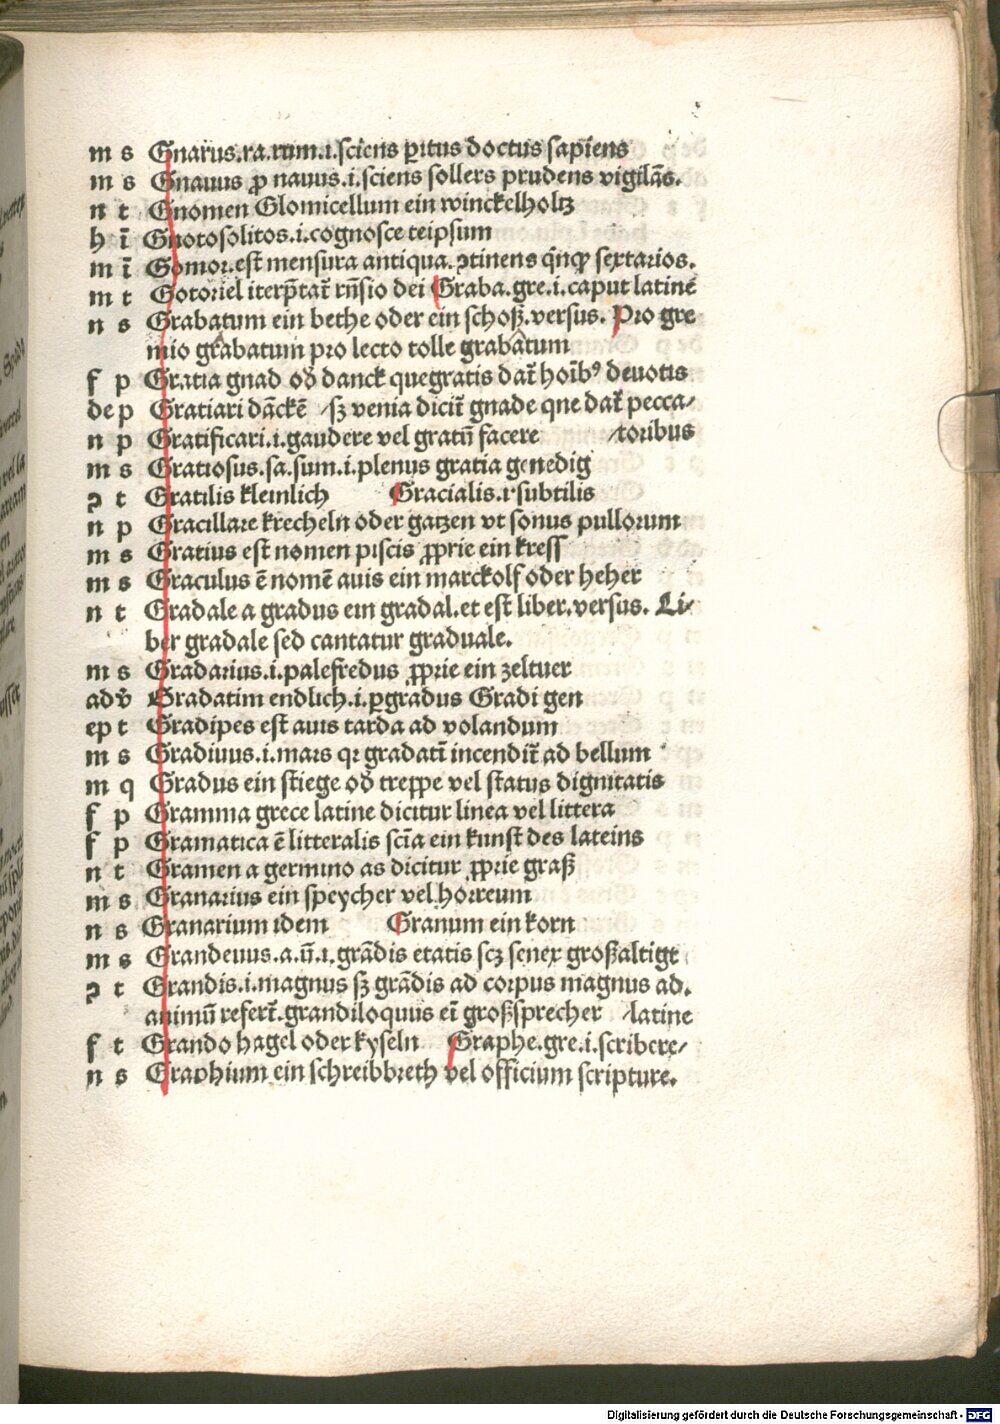 m s Gnarus.ra.rum.i.sciens ꝑitus doctus sapiens
m s Gnauus ꝓ nauus.i.sciens sollers prudens vigilās.
n t Gnomen Glomicellum ein winckelholtz
h ī Gnotosolitos.i.cognosce teipsum
m ī Gomor.est mensura antiqua.ↄtinens q̄nqꝫ sextarios.
m t Gotoriel iterp̄tat᷑ rn̄sio dei Graba.gre.i.caput latine
n s Grabatum ein bethe oder ein schoß.versus. Pro gre
mio grabatum pro lecto tolle grabatum
f p Gratia gnad od̄ danck que gratis dat᷑ hoīb⁹ deuotis
de p Gratiari dāckē /sꝫ venia dicit᷑ gnade qne dat᷑ pecca/
n p Gratificari.i.gaudere vel gratū facere /toribus
m s Gratiosus.sa.sum.i.plenus gratia genedig
ↄ t Gratilis kleinlich Gracialis.i subtilis
n p Gracillare krecheln oder gatzen vt sonus pullorum
m s Gratius est nomen piscis ꝓprie ein kress
m s Graculus ē nomē auis ein marckolf oder heher
n t Gradale a gradus ein gradal.et est liber.versus. Li/
ber gradale sed cantatur graduale.
m s Gradarius.i.palefredus ꝓprie ein zeltuer
adv̄ Gradatim endlich.i.ꝑgradus Gradi gen
ep t Gradipes est auis tarda ad volandum
m s Gradiuus.i.mars qr gradatī incendit᷑ ad bellum
m q Gradus ein stiege od̄ treppe vel status dignitatis
f p Gramma grece latine dicitur linea vel littera
f p Gramatica ē litteralis scīa ein kunst des lateins
n t Gramen a germino as dicitur ꝓprie graß
m s Granarius ein speycher vel horreum
n s Granarium idem Granum ein korn
m s Grandeuus.a.ū.i.grādis etatis scꝫ senex großaltigt
ↄ t Grandis.i.magnus sꝫ grādis ad corpus magnus ad.
animū refert᷑.grandiloquus eī großsprecher /latine
f t Grando hagel oder kyseln Graphe.gre.i.scribere/
n s Graphium ein schreibbreth vel officium scripture.
Digitalisierung gefördert durch die Deutsche Forschungsgemeinschaft - DFG